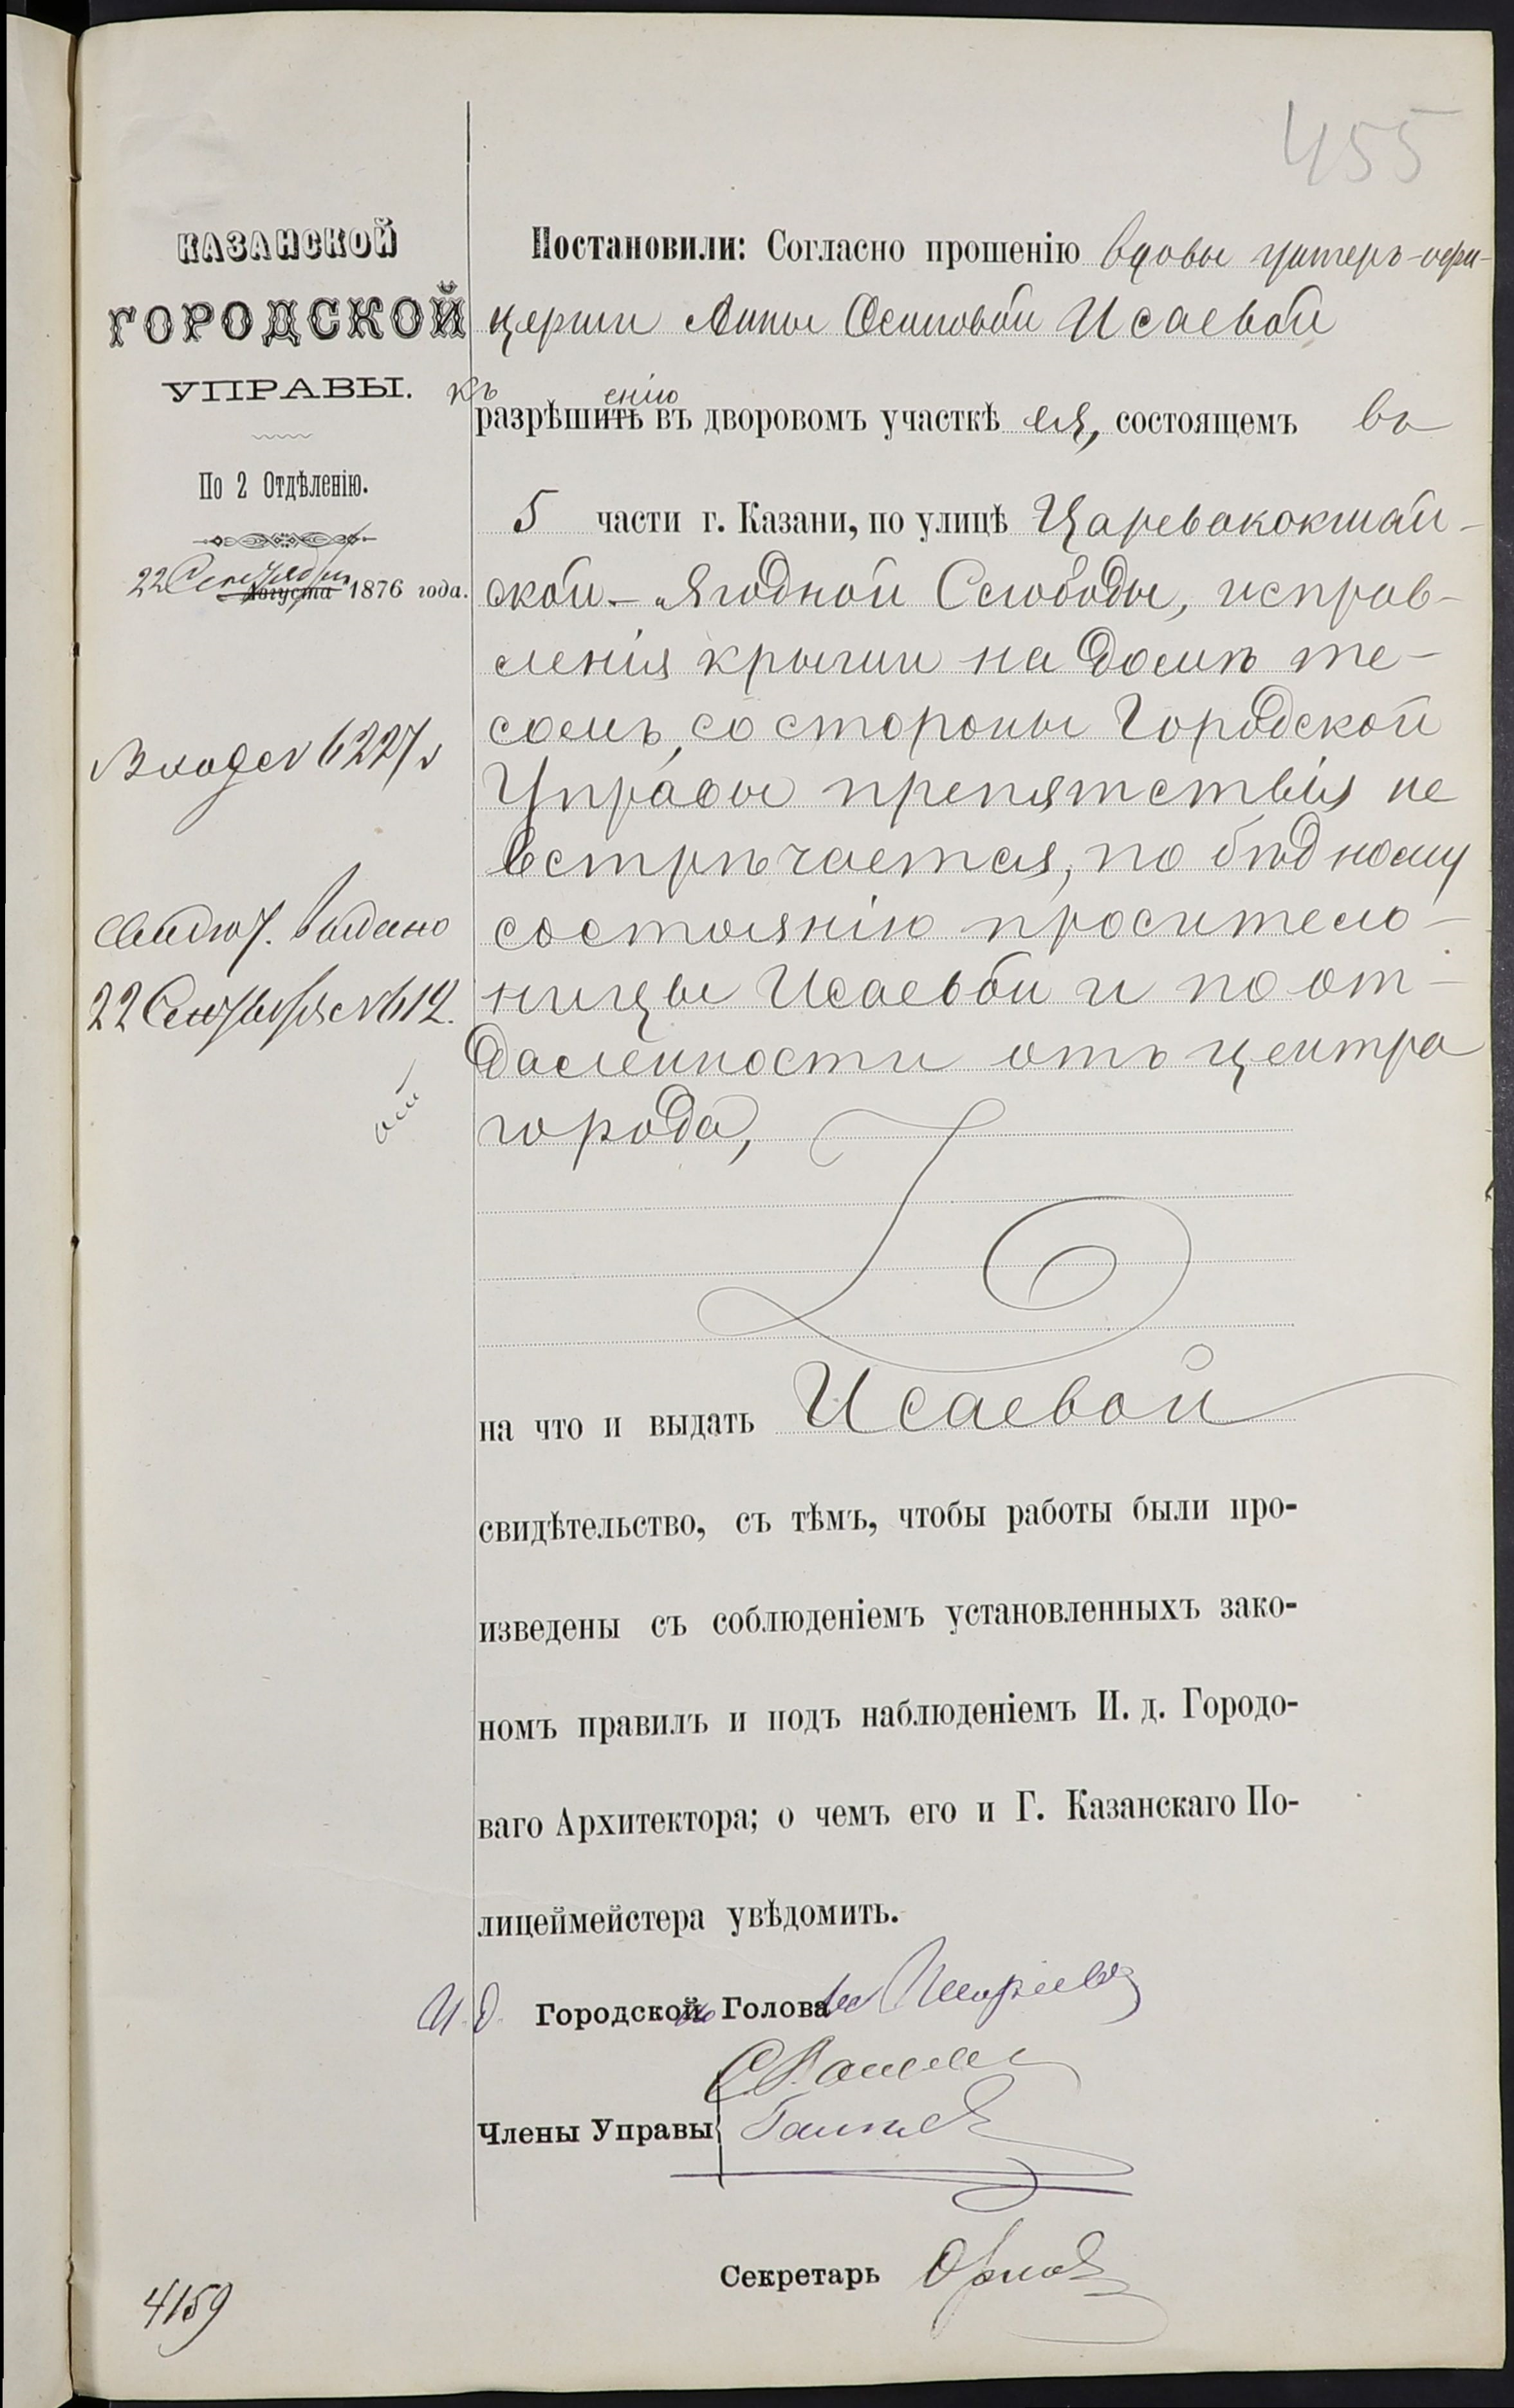 455
КАЗАНСКОЙ
ГОРОДСКОЙ
УПРАВЫ.
По 2 Отдѣленію.
22 Сентября
Августа 1876 года.
Вход № 6227
Свидѣт. выдано
22 Сентября № 612.
Постановили: Согласно прошенію вдовы унтеръ-офи-
церши Анны Осиповой Исаевой
къ разрѣшить енію въ дворовомъ участкѣ ея, состоящемъ въ
5 части г. Казани, по улицѣ Царевококшай-
ской - Ягодной Слободы, исправ-
ленія крыши на домѣ те-
сомъ, со стороны Городской
Управы препятствія не
встрѣчается, по бѣдному
состоянію проситель-
ницы Исаевой и по от-
даленности отъ центра
города,
на что и выдать Исаевой
свидѣтельство, съ тѣмъ, чтобы работы были про-
изведены съ соблюденіемъ установленныхъ зако-
номъ правилъ и подъ наблюденіемъ И. д. Городо-
ваго Архитектора; о чемъ его и Г. Казанскаго По-
лицеймейстера увѣдомить.
И. д. Городской Голова
Члены Управы
Секретарь
4159